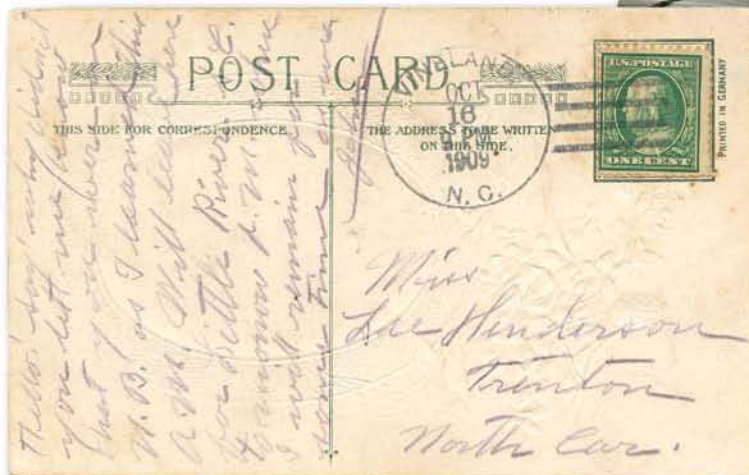 POST CARD
THIS SIDE FOR CORRESPONDENCE.
THE ADDRESS TO BE WRITTEN
ON THIS SIDE.
VINELAND
OCT
16
PM
1909
N. C.
U.S. POSTAGE
ONE CENT
PRINTED IN GERMANY
Hello! say why didn't
you let me know
that you were in
N. B. as I learned this
a.m. Will leave here
for Little River S. C.
tomorrow p.m. where
I will remain for
some time
John
Miss
Henderson
Trenton
North Car.